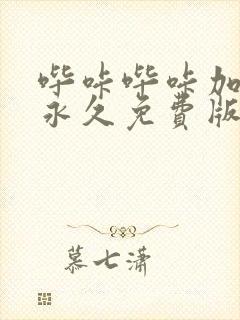 哔咔哔咔加
永久免费版
慕七潇